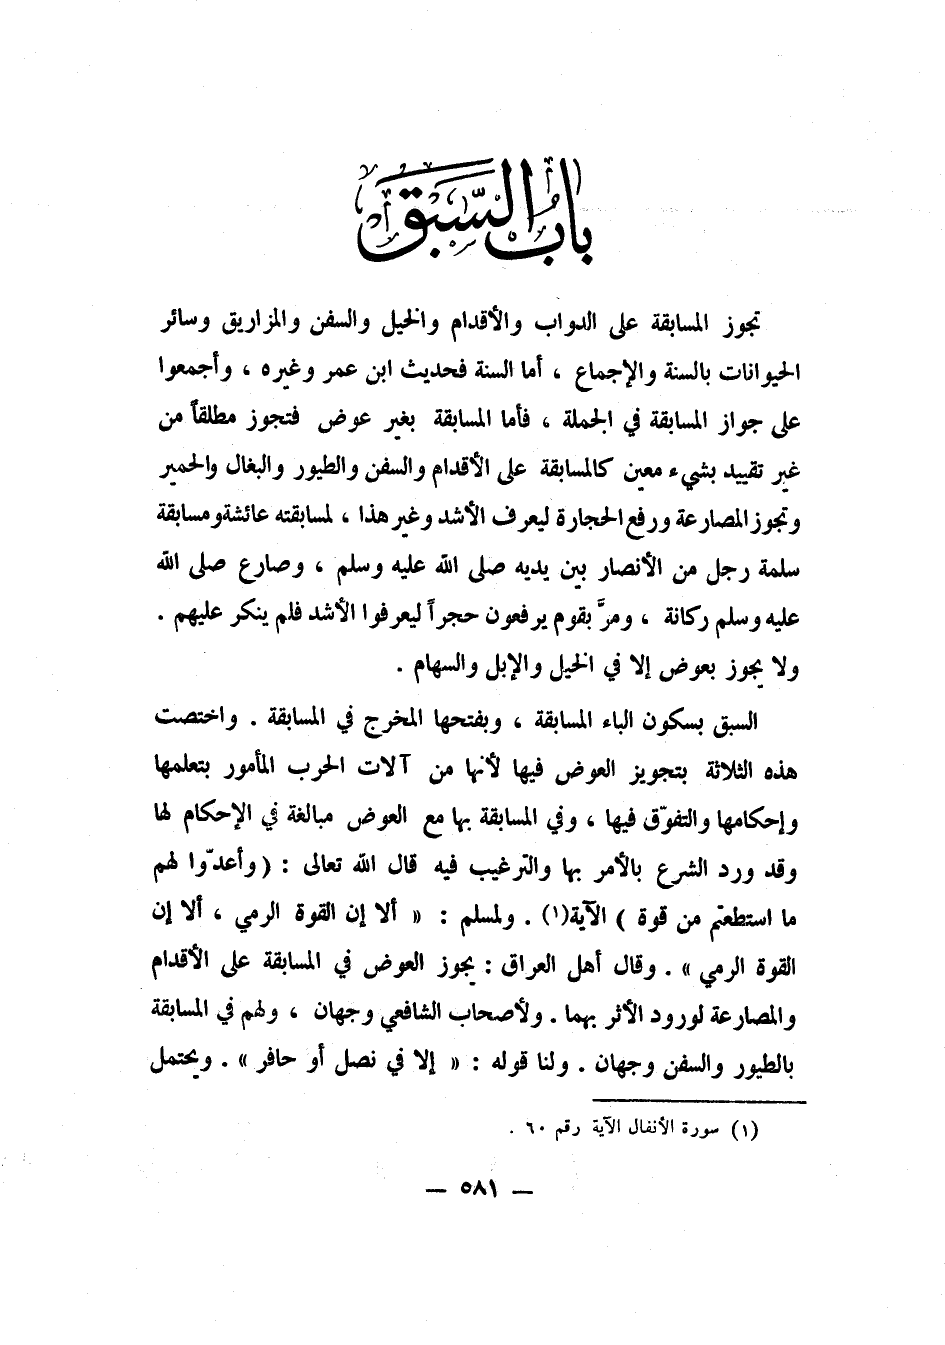 باب السبق
تجوز المسابقة على الدواب والأقدام والخيل والسفن والمزاريق وسائر
الحيوانات بالسنة والإجماع ، أما السنة فحديث ابن عمر وغيره ، وأجمعوا
على جواز المسابقة في الجملة ، فأما المسابقة بغير عوض فتجوز مطلقاً من
غير تقييد بشيء معين كالمسابقة على الأقدام والسفن والطيور والبغال والحمير
وتجوز المصارعة ورفع الحجارة ليعرف الأشد وغير هذا ، لمسابقته عائشة ومسابقة
سلمة رجل من الأنصار بين يديه صلى الله عليه وسلم ، وصارع صلى الله
عليه وسلم ركانة ، ومرَّ بقوم يرفعون حجراً ليعرفوا الأشد فلم ينكر عليهم .
ولا يجوز بعوض إلا في الخيل والإبل والسهام .
السبق بسكون الباء المسابقة ، وبفتحها المخرج في المسابقة . واختصت
هذه الثلاثة بتجويز العوض فيها لأنها من آلات الحرب المأمور بتعلمها
وإحكامها والتفوّق فيها ، وفي المسابقة بها مع العوض مبالغة في الإحكام لها
وقد ورد الشرع بالأمر بها والترغيب فيه قال الله تعالى : ( وأعدّوا لهم
ما استطعتم من قوة ) الآية(١) . ولمسلم : « ألا إن القوة الرمي ، ألا إن
القوة الرمي » . وقال أهل العراق : يجوز العوض في المسابقة على الأقدام
والمصارعة لورود الأثر بهما . ولأصحاب الشافعي وجهان ، ولهم في المسابقة
بالطيور والسفن وجهان . ولنا قوله : « إلا في نصل أو حافر » . ويحتمل
(١) سورة الأنفال الآية رقم ٦٠ .
— ٥٨١ —